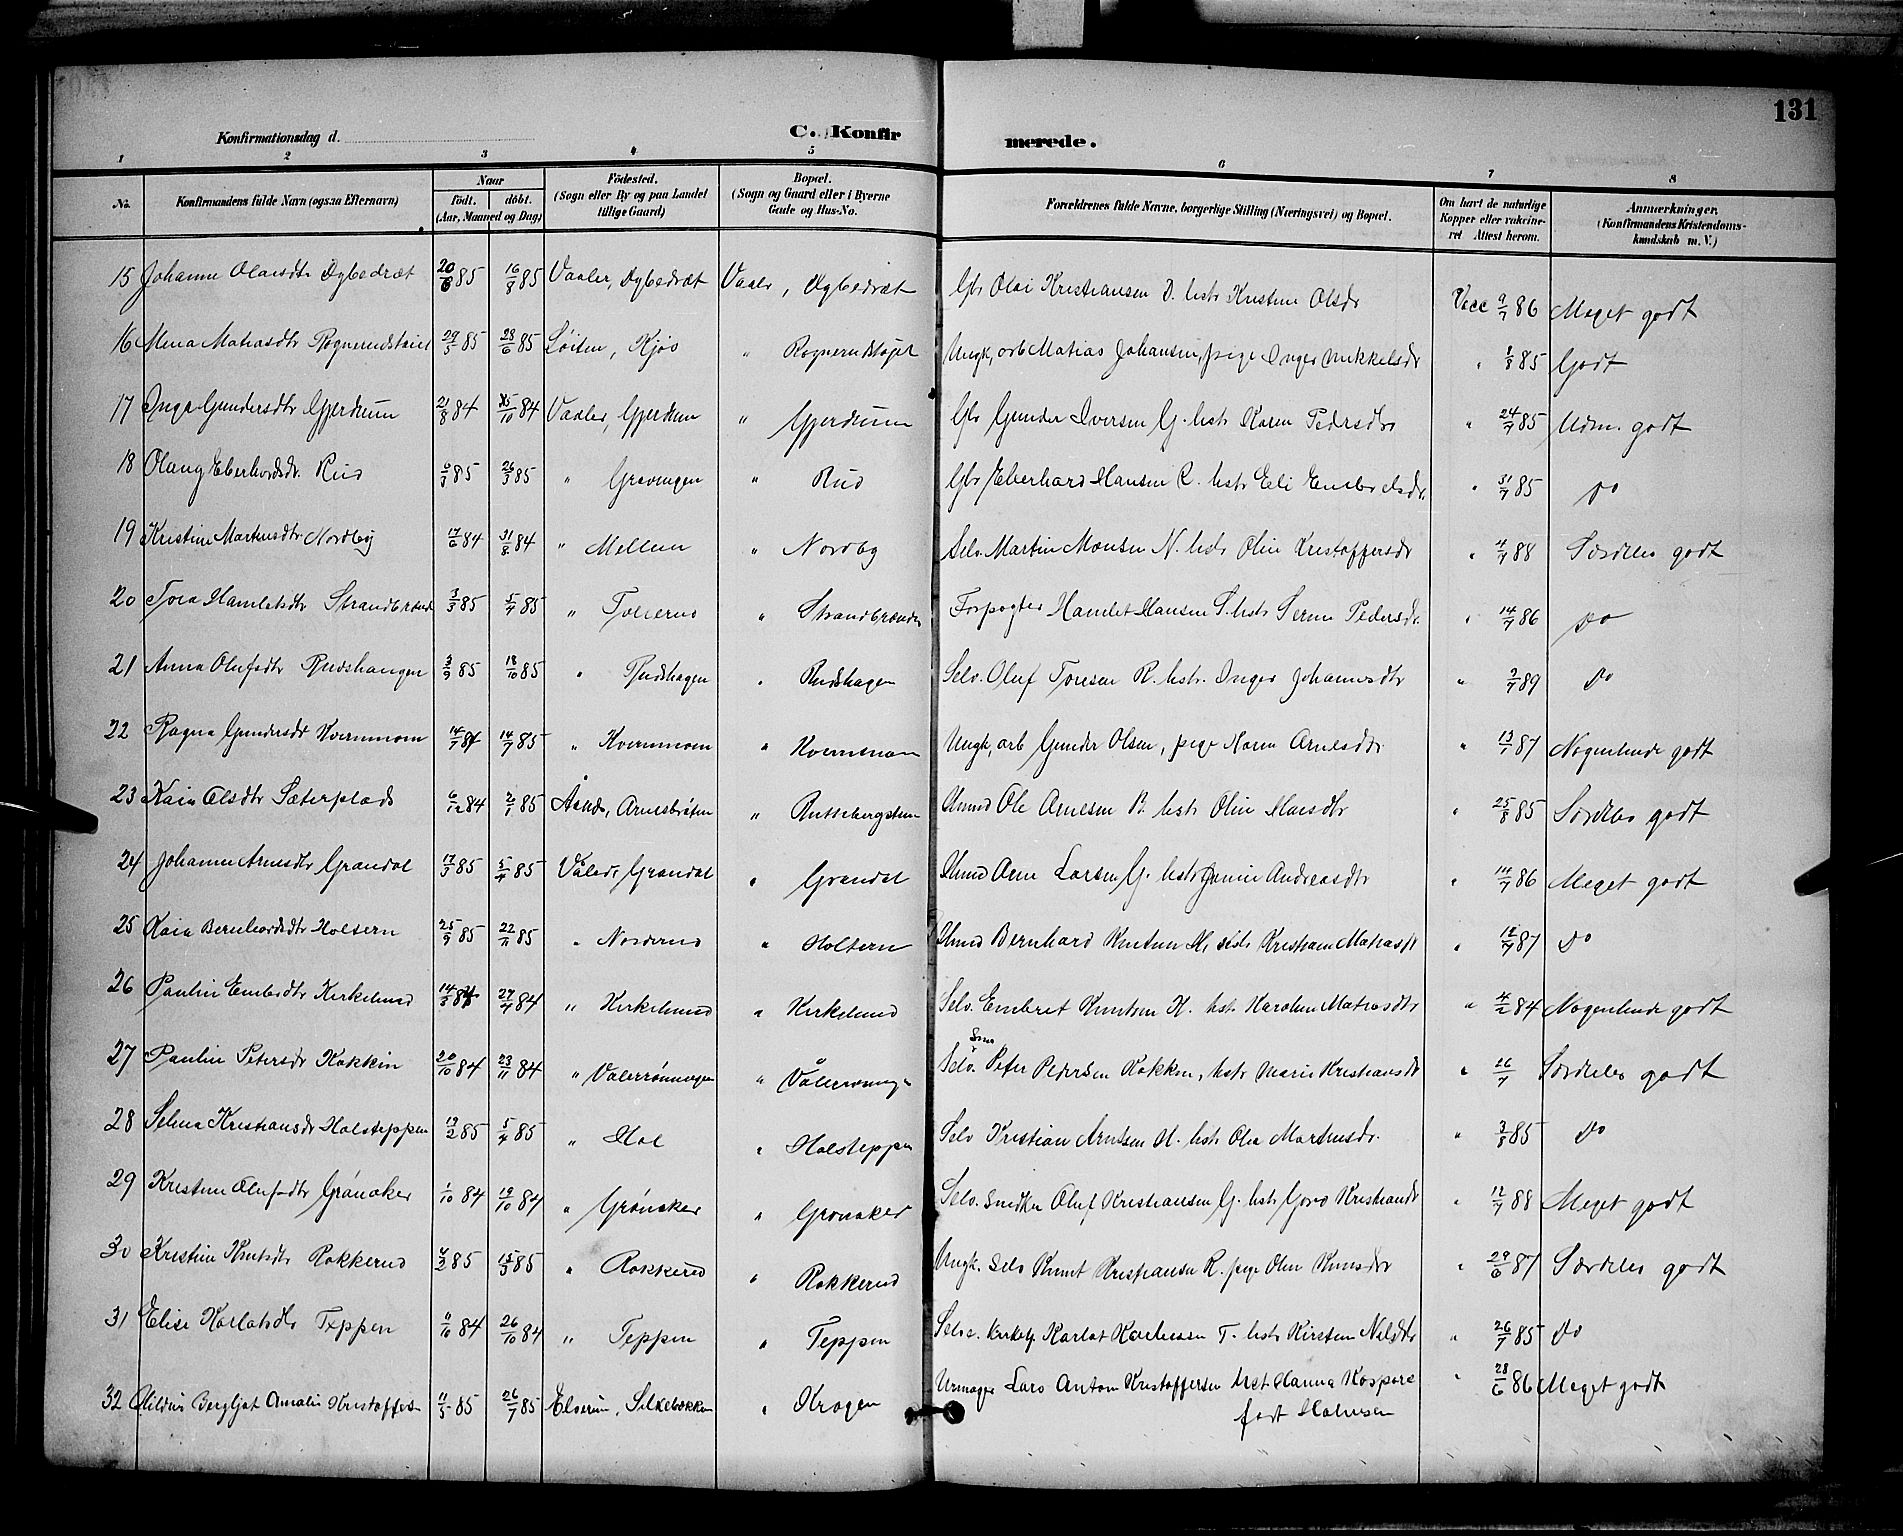 131
Konfirmationsdag d.
C. Konfirmerede.
1 2 3 4 5 6 7 8
No. Konfirmandens fulde Navn (ogsaa Efternavn) Naar födt. döbt. (Aar, Maaned og Dag) Födested. (Sogn eller By og paa Landet tillige Gaard) Bopæl. (Sogn og Gaard eller i Byerne Gade og Hus-No. Forældrenes fulde Navne, borgerlige Stilling (Næringsvei) og Bopæl. Om havt de naturlige Kopper eller vakcineret Attest herom. Anmærkninger. (Konfirmandens Kristendomskundskab m. V.)
15 Johanne Olaisdtr Dybedræt 20/6 85 16/8 85 Vaaler, Dybedræt Vaaler, Dybedræt Gbr Olai Kristiansen D. hstr Kristine Olsdr Vacc 9/7 86 Meget godt
16 Mina Matiasdtr 29/5 85 28/6 85 Löiten, Kjös " Rognerudstöjet Ungk, arb Matias Johansen, pige Inger Mikkelsdr " 85 Godt
17 Inga Gundersdtr Gjerdrum 21/8 84 /10 84 Vaaler, Gjerdrum " Gjerdrum Gbr Gunder Iversen G. hstr Karen Pedrsdtr " 24/7 85 Udm. godt
18 Olaug Eberhardsdr. Rud 85 26/3 85 " Gravengen " Rud Gbr Eberhard Hansen R. hstr Eli Embretsdr. " 31/7 85 Do
19 Kristine Martinsdtr Nordby 17/6 84 31/8 84 " Mellem " Nordby Selv. Martin Monsen N. hstr Olin Kristoffersdr " 4/7 88 Særdeles godt
20 Tora Hamletsdtr Strandbrænd 3/3 85 5/4 85 " " Strandbrænden Forpagter Hamlet Hansen S. hstr Pedersdr. " 14/7 86 Do
21 Anna Olufsdtr Rudshaugen 3/9 85 18/10 85 " Rudshagen " Rudshagen Selv. Oluf Toresen R. hstr. Inger Johannesdtr " 2/7 89 Do
22 Ragna Gundersdr Kvernmoen 14/7 84 14/7 85 " Kvernmoen " Kvernmoen Ungk, arb Gunder Olsen, pige Karen Arnesdtr " 13/7 87 Nogenlunde godt
23 Kaia Olsdtr Sæterplads 6/12 84 2/1 85 Aasnes, Arnesbråten " Husmd Ole Arnesen hstr Olin " 25/8 85 Særdeles godt
24 Johanne Arnesdtr Grandal 17/3 85 5/4 85 Valer, Grandal " Grandal Husmd Arne Larsen G. hstr Andreasdtr " 14/7 86 Meget godt
25 Kaia Bernhardsdtr Holtern 25/9 85 22/11 85 " Norderud " Holtern Husmd Bernhard Knutsen H. hstr Kristiane Matiasdr " 18/7 87 Do
26 Paulin Embrdtr Kirkelund 14/3 84 27/4 84 " Kirkelund " Kirkelund Selv. Embret Knutsen K. hstr Karoline Matiasdtr " 4/2 84 Nogenlunde godt
27 Paulin Petersdr Kokkin 20/10 84 23/11 84 " Valerrönningen " Vålerrönningen Selv. Peter Pedersen Kokken, hstr Marie Kristiansdr " 26/7 Særdeles godt
28 Selma Kristiansdr Holsteppen 13/2 85 5/4 85 " Hol " Holsteppen Selv Kristian Arntsen H. hstr Olea Martinsdr. " 3/8 85 Do
29 Kristine Olufsdtr Grönaker 1/10 84 19/10 84 " Grönaker " Grönaker Selv. Snedker Oluf Kristiansen G. hstr Kristiansdr " 12/7 88 Meget godt
30 Kristine Knutsdtr Rokkerud 4/2 85 15/3 85 " Rokkerud " Rokkerud Ungk. Selv Knut Kristiansen R. pige Olin Knutsdtr " 29/6 87 Særdeles godt
31 Elise Karlotsdr Teppen 11/10 84 26/10 84 " Teppen " Teppen Selv. Karlot T. hstr Kirsten Nilsdtr " 26/7 85 Do
32 Hildur Bergljot Amalie Kristoffers 11/5 85 26/7 85 Elverum, Silkebækken " Krogen Urmager Lars Anton Kristoffersen hst. Hanna Kaspare födt Halvorsen " 28/6 86 Meget godt